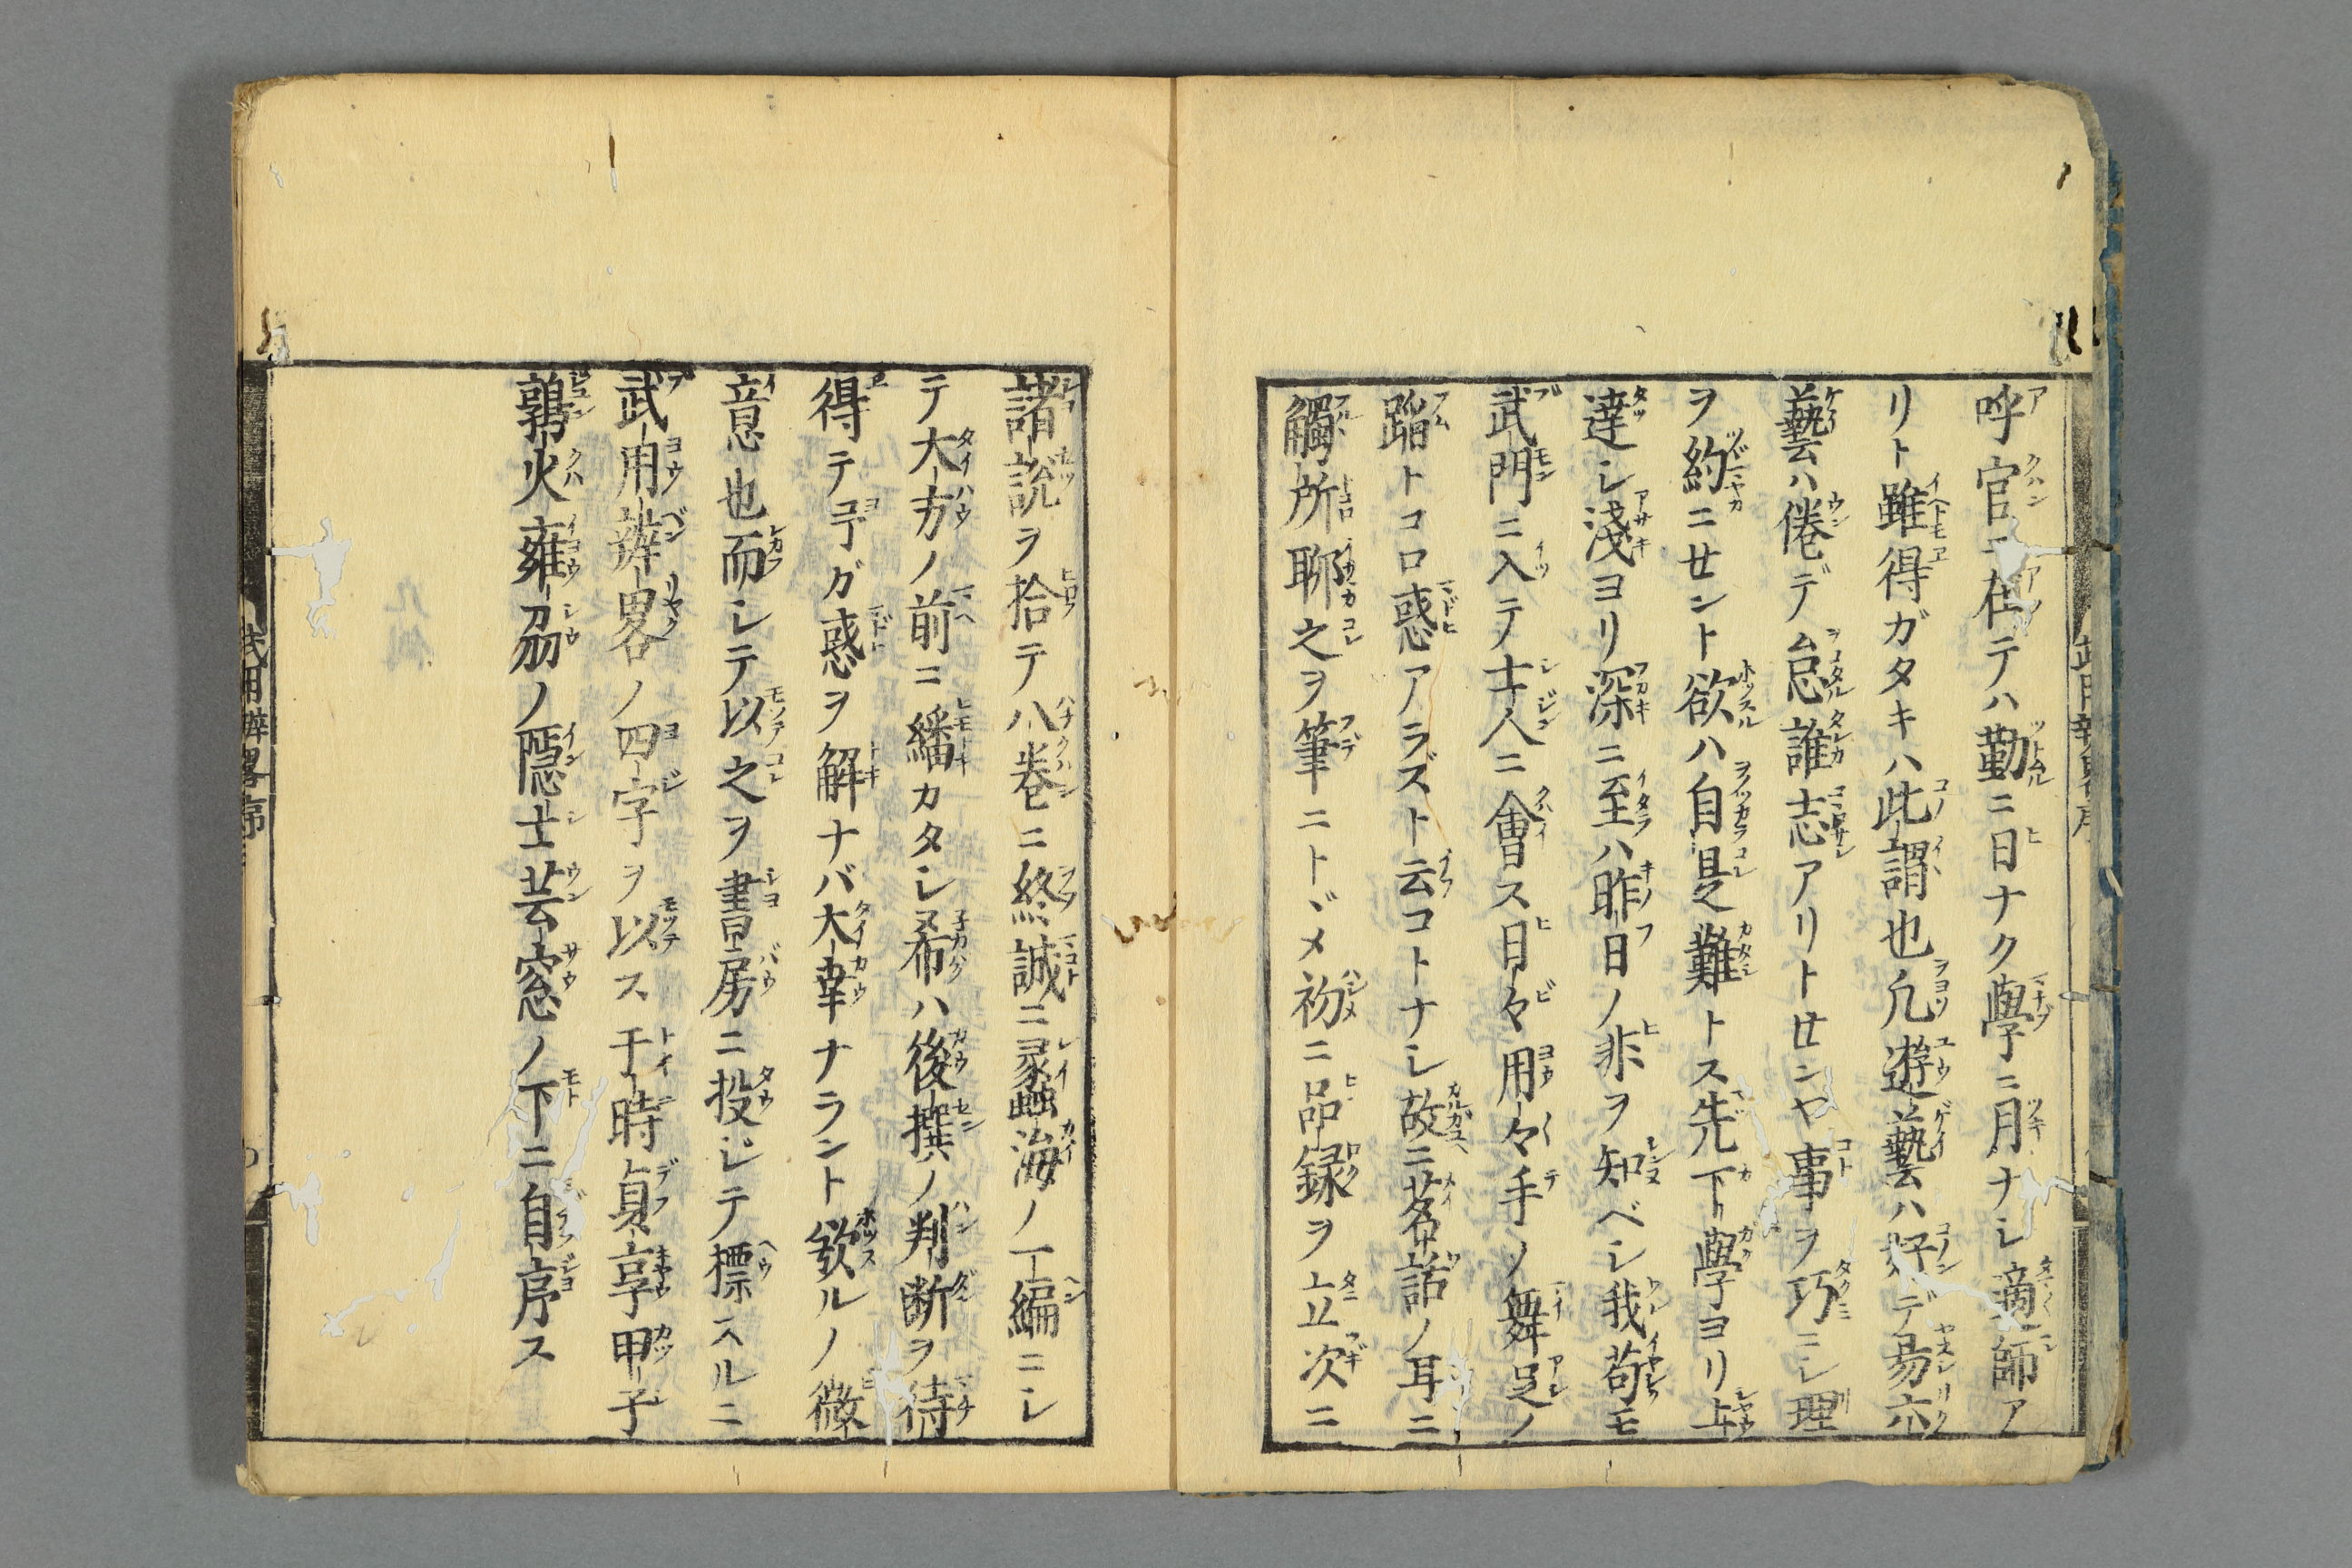 呼官ニ在テハ勤ニ日ナク學ニ月ナシ適師ア
リト雖得ガタキハ此謂也凢遊藝ハ好デ易六
藝ハ倦デ怠誰志アリトセンヤ事ヲ巧ニシ理
ヲ約ニセント欲ハ自是難トス先下學ヨリ上
達シ淺ヨリ深ニ至ハ昨日ノ非ヲ知ベシ我苟モ
武門ニ入テ士人ニ會ス日々用々手ノ舞足ノ
蹈トコロ惑アラズト云コトナシ故ニ茗話ノ耳ニ
觸所聊之ヲ筆ニトヾメ初ニ品録ヲ立次ニ
諸説ヲ拾テ八巻ニ終誠ニ蠡海ノ一編ニシ
テ大方ノ前ニ繙カタシ希ハ後撰ノ判断ヲ待
得テ予ガ惑ヲ解ナバ大幸ナラント欲ルノ微
意也而シテ以之ヲ書房ニ投ジテ標スルニ
武用辨畧ノ四字ヲ以ス于時貞享甲子
鶉火雍刕ノ隠士芸窓ノ下ニ自序ス
武用辨畧序